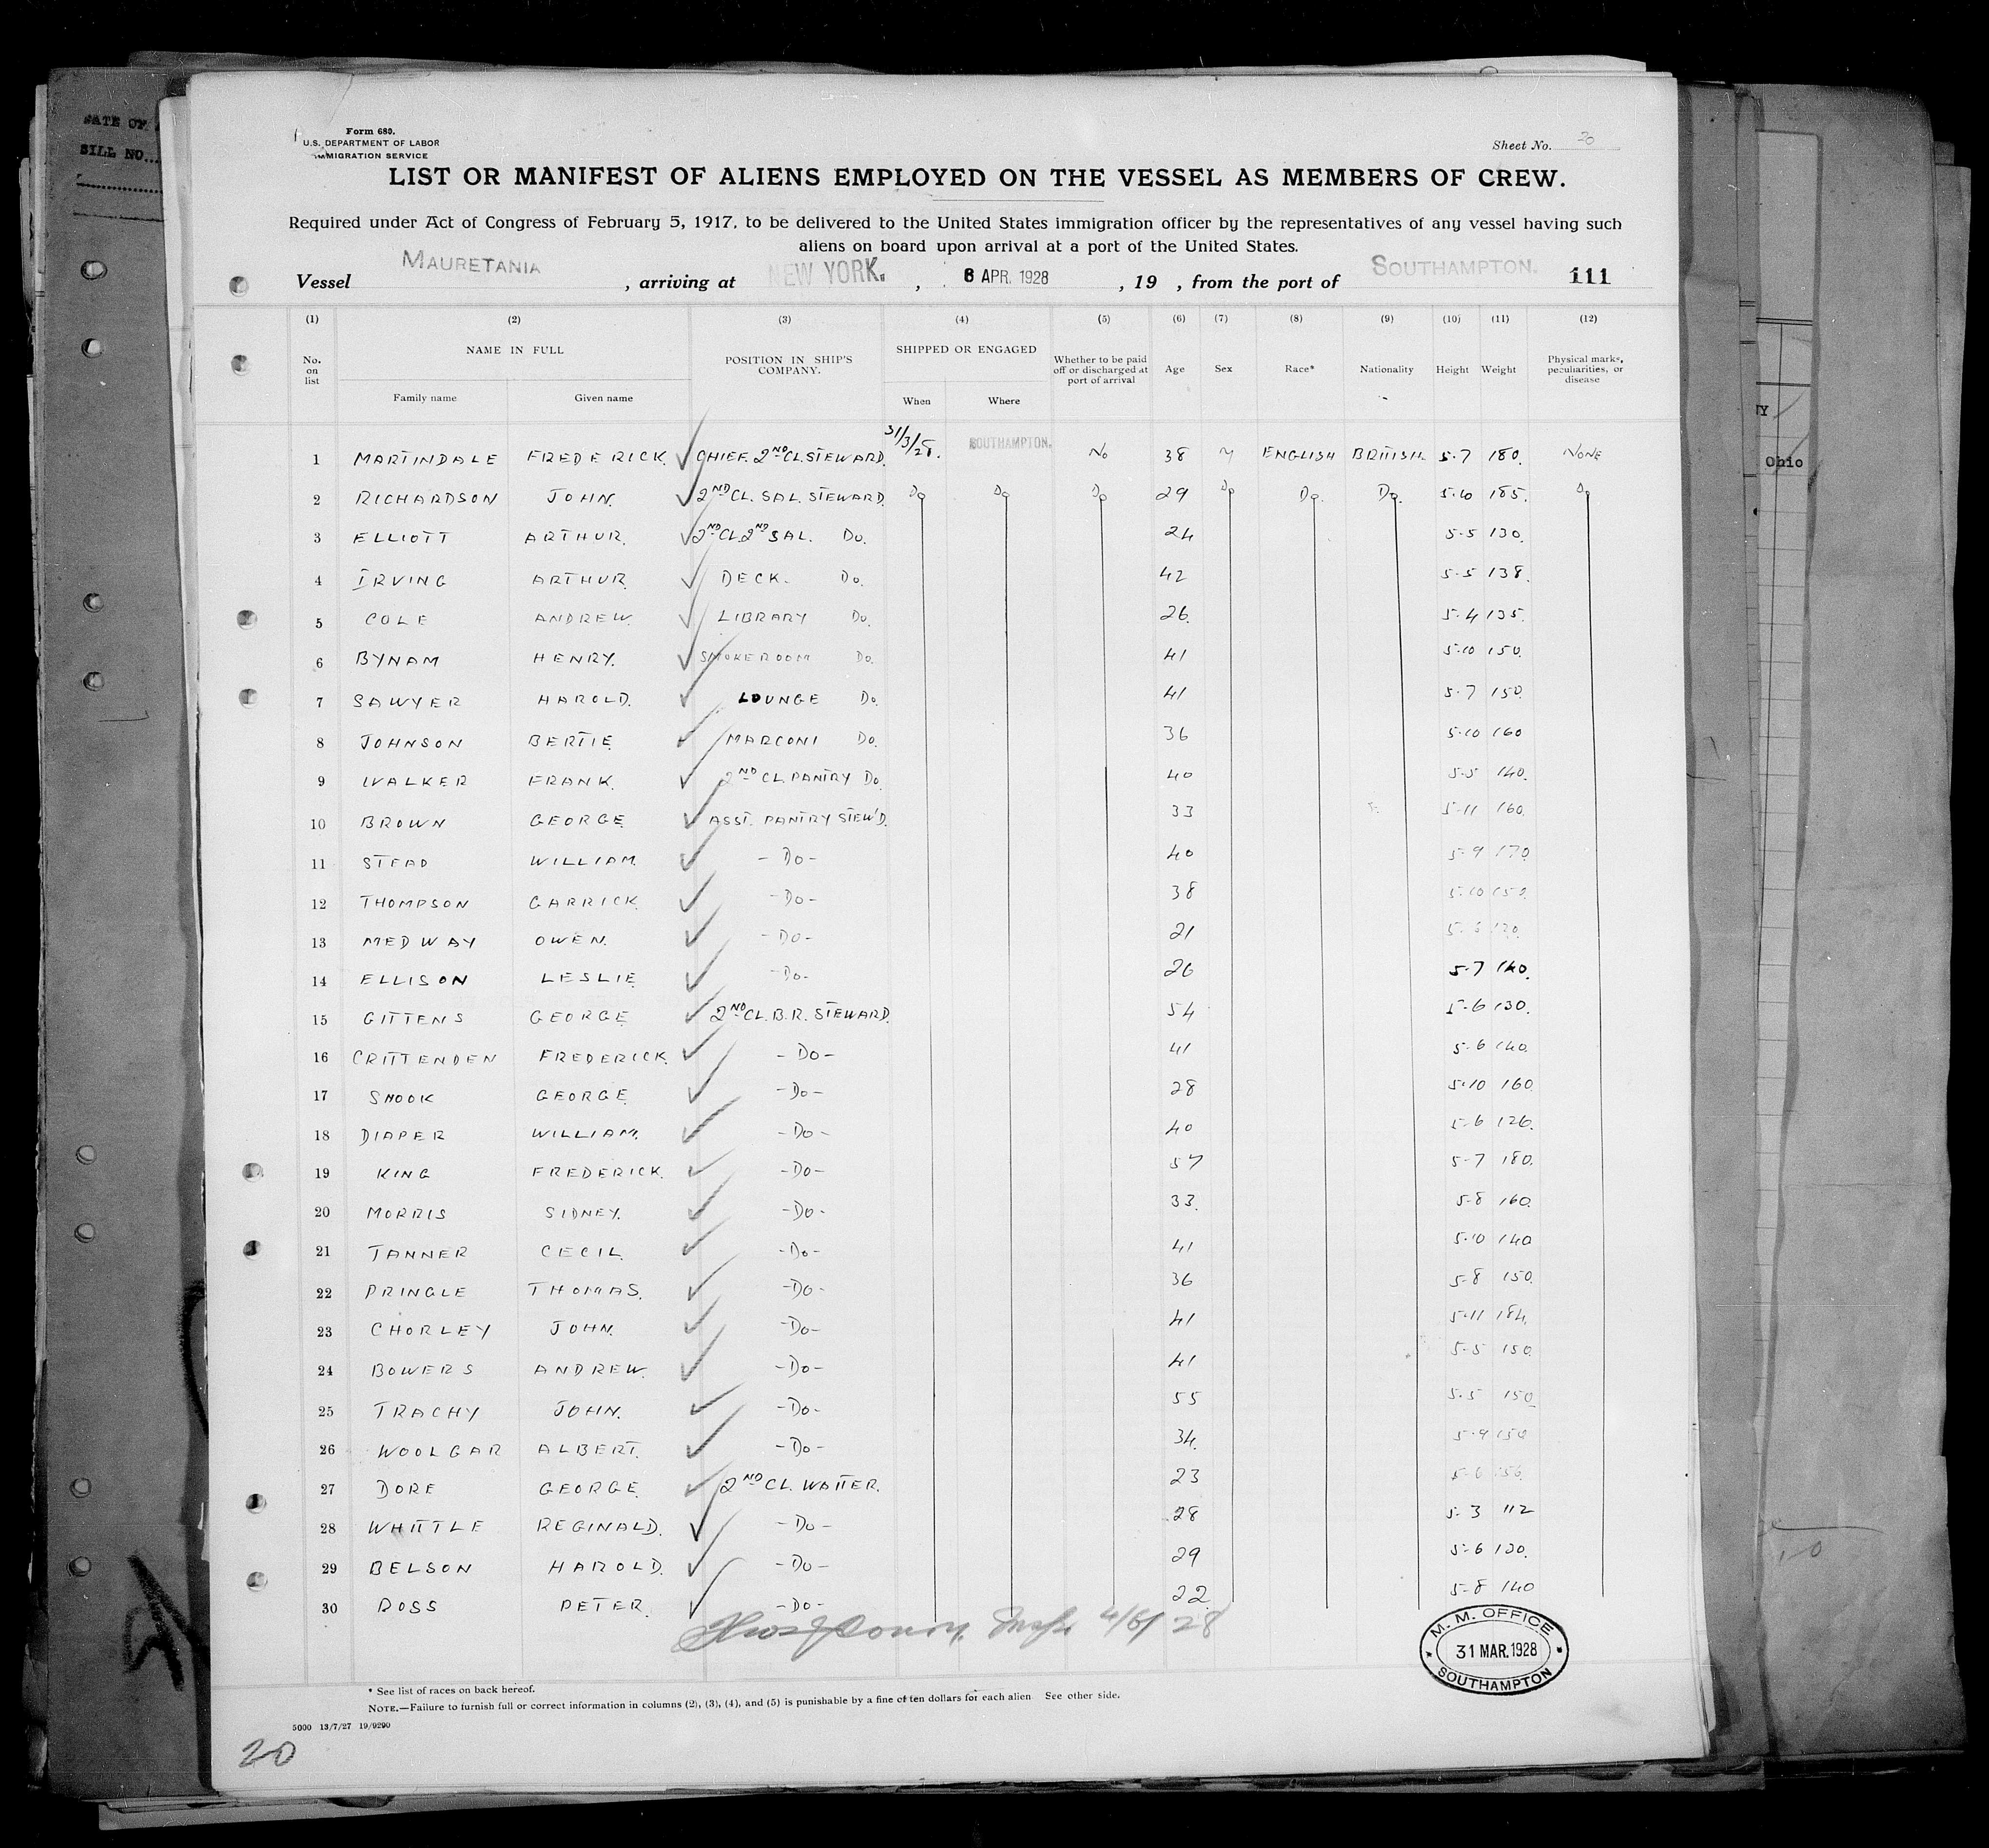 Form 680.
U.S. DEPARTMENT OF LABOR
IMMIGRATION SERVICE
Sheet No. 20
LIST OR MANIFEST OF ALIENS EMPLOYED ON THE VESSEL AS MEMBERS OF CREW.
Required under Act of Congress of February 5, 1917, to be delivered to the United States immigration officer by the representatives of any vessel having such
aliens on board upon arrival at a port of the United States.
Vessel MAURETANIA, arriving at NEW YORK., 6 APR. 1928, 19 , from the port of SOUTHAMPTON. 111
(1) (2) (3) (4) (5) (6) (7) (8) (9) (10) (11) (12)
No. on list NAME IN FULL Family name Given name POSITION IN SHIP'S COMPANY. SHIPPED OR ENGAGED When Where Whether to be paid off or discharged at port of arrival Age Sex Race* Nationality Height Weight Physical marks, peculiarities, or disease
1 MARTINDALE FREDERICK. CHIEF. 2ND CL. STEWARD. 31/3/28. SOUTHAMPTON. No 38 M ENGLISH BRITISH 5-7 180. NONE
2 RICHARDSON JOHN. 2ND CL. SAL. STEWARD. Do Do Do 29 Do Do. Do. 5-10 185. Do
3 ELLIOTT ARTHUR. 2ND CL. 2ND SAL. Do. 24 5-5 130.
4 IRVING ARTHUR. DECK. Do. 42 5-5 138.
5 COLE ANDREW. LIBRARY Do. 26. 5-4 135.
6 BYNAM HENRY. SMOKEROOM Do. 41 5-10 150.
7 SAWYER HAROLD. LOUNGE Do. 41 5-7 150.
8 JOHNSON BERTIE MARCONI Do. 36 5-10 160
9 WALKER FRANK. 2ND CL. PANTRY Do. 40 5-5 140.
10 BROWN GEORGE ASST. PANTRY STEW'D. 33 5-11 160.
11 STEAD WILLIAM. -Do- 40 5-9 170.
12 THOMPSON GARRICK. -Do- 38 5-10 150.
13 MEDWAY OWEN. -Do- 21
14 ELLISON LESLIE -Do- 26 5-7 140.
15 GITTENS GEORGE 2ND CL. B.R. STEWARD. 54 5-6 130.
16 CRITTENDEN FREDERICK. -Do- 41 5-6 140.
17 SNOOK GEORGE -Do- 28 5-10 160.
18 DIAPER WILLIAM. -Do- 40 5-6 126.
19 KING FREDERICK. -Do- 57 5-7 180.
20 MORRIS SIDNEY. -Do- 33. 5-8 160.
21 TANNER CECIL -Do- 41 5-10 140
22 PRINGLE THOMAS. -Do- 36 5-8 150.
23 CHORLEY JOHN. -Do- 41 5-11 184.
24 BOWERS ANDREW. -Do- 41 5-5 150.
25 TRACHY JOHN. -Do- 55 5-5 150.
26 WOOLGAR ALBERT. -Do- 34. 5-9 150
27 DORE GEORGE 2ND CL. WAITER. 23
28 WHITTLE REGINALD. -Do- 28 5-3 112
29 BELSON HAROLD. -Do- 29 5-6 130.
30 ROSS PETER. -Do- 22. 5-8 140
4/6/28
M. M. OFFICE
31 MAR. 1928
SOUTHAMPTON
* See list of races on back hereof.
NOTE.—Failure to furnish full or correct information in columns (2), (3), (4), and (5) is punishable by a fine of ten dollars for each alien See other side.
5000 13/7/27 19/9290
20
BILL NO...
NY
Ohio